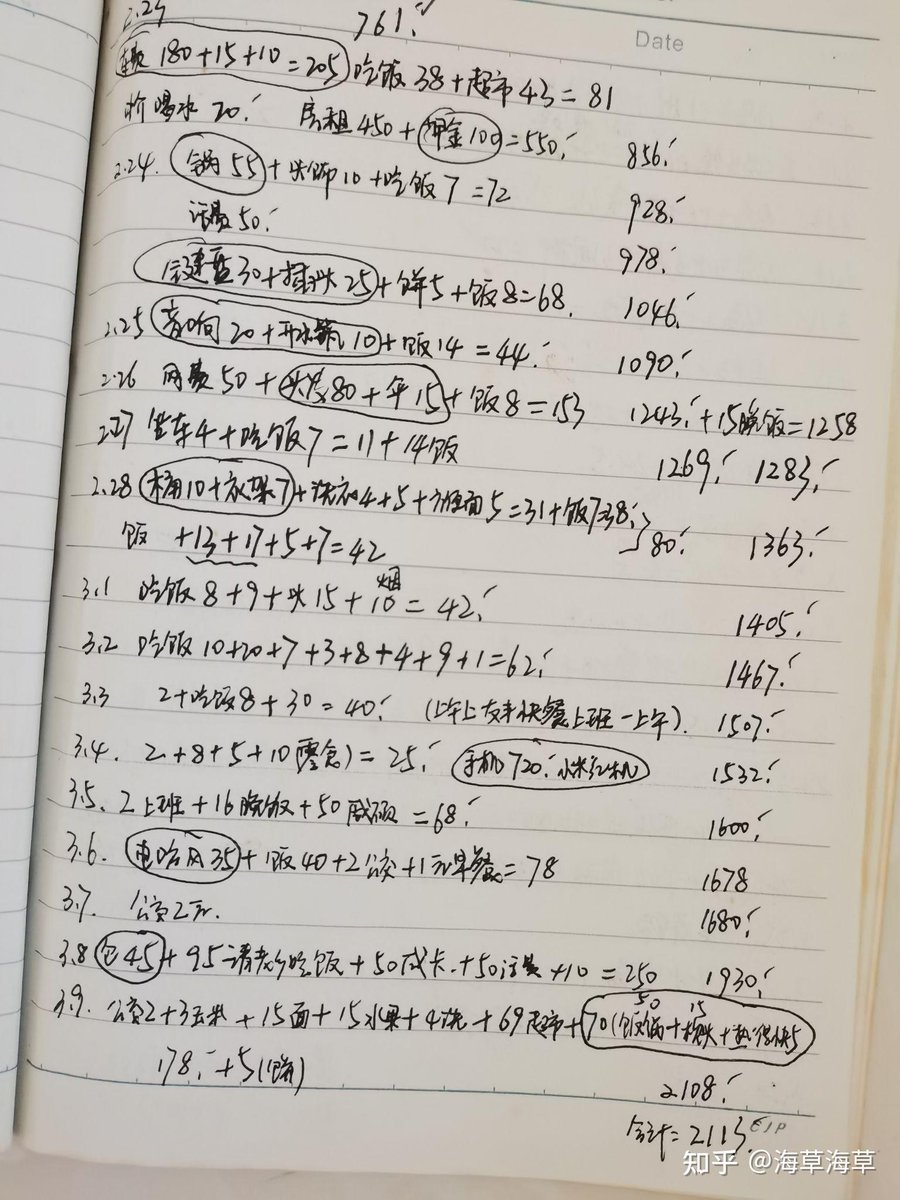 2.23 761.
Date
车费 180+15+10=205 吃饭 38+超市 43=81
喝水 20. 房租 450+押金100=550. 856.
2.24. 锅 55+头饰10+吃饭 7=72 928.
话费 50. 978.
键盘 30+插头 25+饼5+饭8=68. 1046.
2.25 音响 20+开水瓶10+饭14=44. 1090.
2.26 网费 50+头发80+伞15+饭8=153 1243.+15晚饭=1258
2.27 坐车4+吃饭7=11+14饭 1269. 1283.
2.28 桶10+衣架7+洗衣4+5+方便面5=31+饭7=38. 80. 1363.
饭 +13+17+5+7=42
3.1 吃饭 8+9+头15+10烟=42. 1405.
3.2 吃饭 10+20+7+3+8+4+9+1=62. 1467.
3.3 2+吃饭8+30=40. (上午上友丰快餐上班一上午). 1507.
3.4. 2+8+5+10(零食)=25. 手机720. 小米红机 1532.
3.5. 2上班+16晚饭+50=68. 1600.
3.6. 电吹风35+饭40+2公交+1元早餐=78 1678
3.7. 公交2元. 1680.
3.8 包45+95请老乡吃饭+50+50话费+10=250 1930.
3.9. 公交2+3玉米+15面+15水果+4洗+69超市+70(饭锅50+插头15+热得快5
178.+5 2108.
合计=2113.
知乎 @海草海草